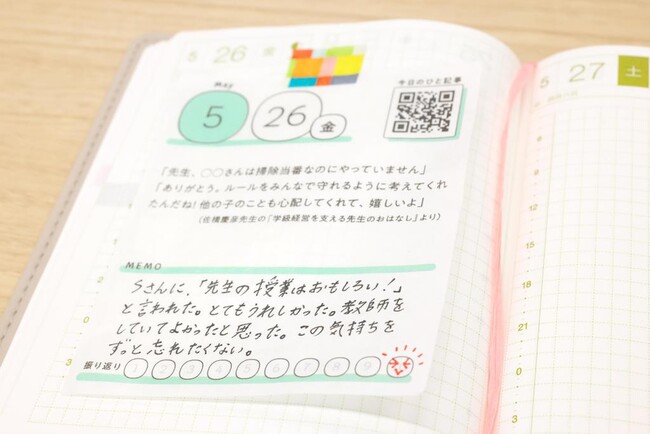 5 26 金
may
5 26 金
今日のひと記事
「先生、○○さんは掃除当番なのにやっていません」
「ありがとう。ルールをみんなで守れるように考えてくれ
たんだね!他の子のことも心配してくれて、嬉しいよ」
(佐橋慶彦先生の『学級経営を支える先生のおはなし』より)
MEMO
Sさんに、「先生の授業はおもしろい!」
と言われた。とてもうれしかった。教師を
していてよかったと思った。この気持ちを
ずっと忘れたくない。
振り返り 1 2 3 4 5 6 7 8 9
5 27 土
12
15
18
21
0
3